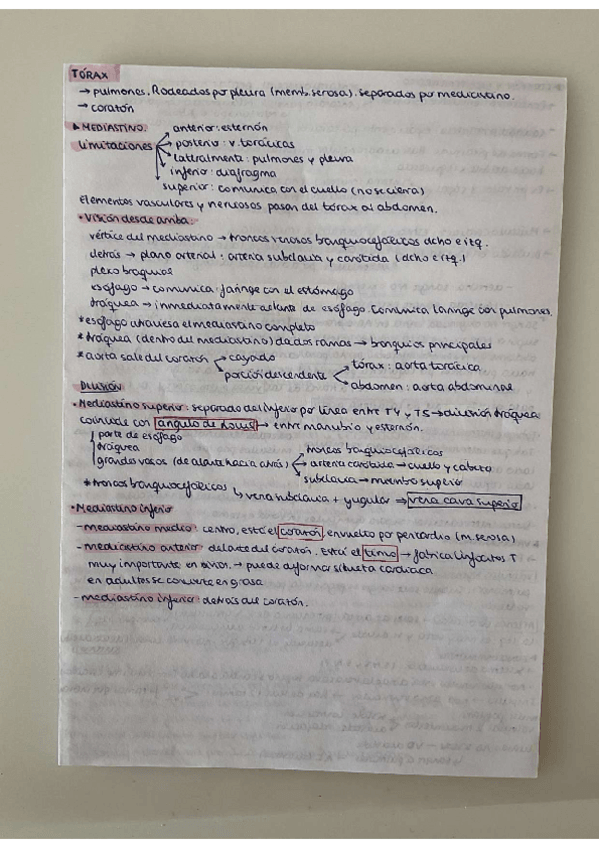 TÓRAX
→ pulmones. Rodeados por pleura (memb. serosa). separados por mediastino.
→ corazón
▲ MEDIASTINO.
Limitaciones
→ anterior: esternón
→ posterior: v. torácicas
→ lateralmente: pulmones y pleura
→ inferior: diafragma
superior: comunica con el cuello (no se cierra)
Elementos vasculares y nerviosos pasan del tórax al abdomen.
• Visión desde arriba:
vértice del mediastino → troncos venosos braquiocefálicos dcho e izq.
detrás → plano arterial: arteria subclavia y carótida (dcho e izq.)
plexo braquial
esófago → comunica faringe con el estómago
tráquea → inmediatamente delante de esófago. Comunica laringe con pulmones.
*esófago atraviesa el mediastino completo
*tráquea (dentro del mediastino) da dos ramas → bronquios principales
*aorta sale del corazón → cayado
→ porción descendente → tórax: aorta torácica
→ abdomen: aorta abdominal
DIVISIÓN
• Mediastino superior: separado del inferior por línea entre T4 y T5 → división tráquea
coincide con ángulo de Louis → entre manubrio y esternón.
parte de esófago
tráquea
grandes vasos (de delante hacia atrás) → troncos braquiocefálicos
→ arteria carótida → cuello y cabeza
→ subclavia → miembro superior
*troncos braquiocefálicos ↳ vena subclavia + yugular → vena cava superior
• Mediastino inferior
- mediastino medio: centro, está el corazón, envuelto por pericardio (m. serosa)
- mediastino anterior: delante del corazón. Está el timo → fabrica linfocitos T
muy importante en niños. → puede deformar silueta cardiaca
en adultos se convierte en grasa
- mediastino inferior: detrás del corazón.